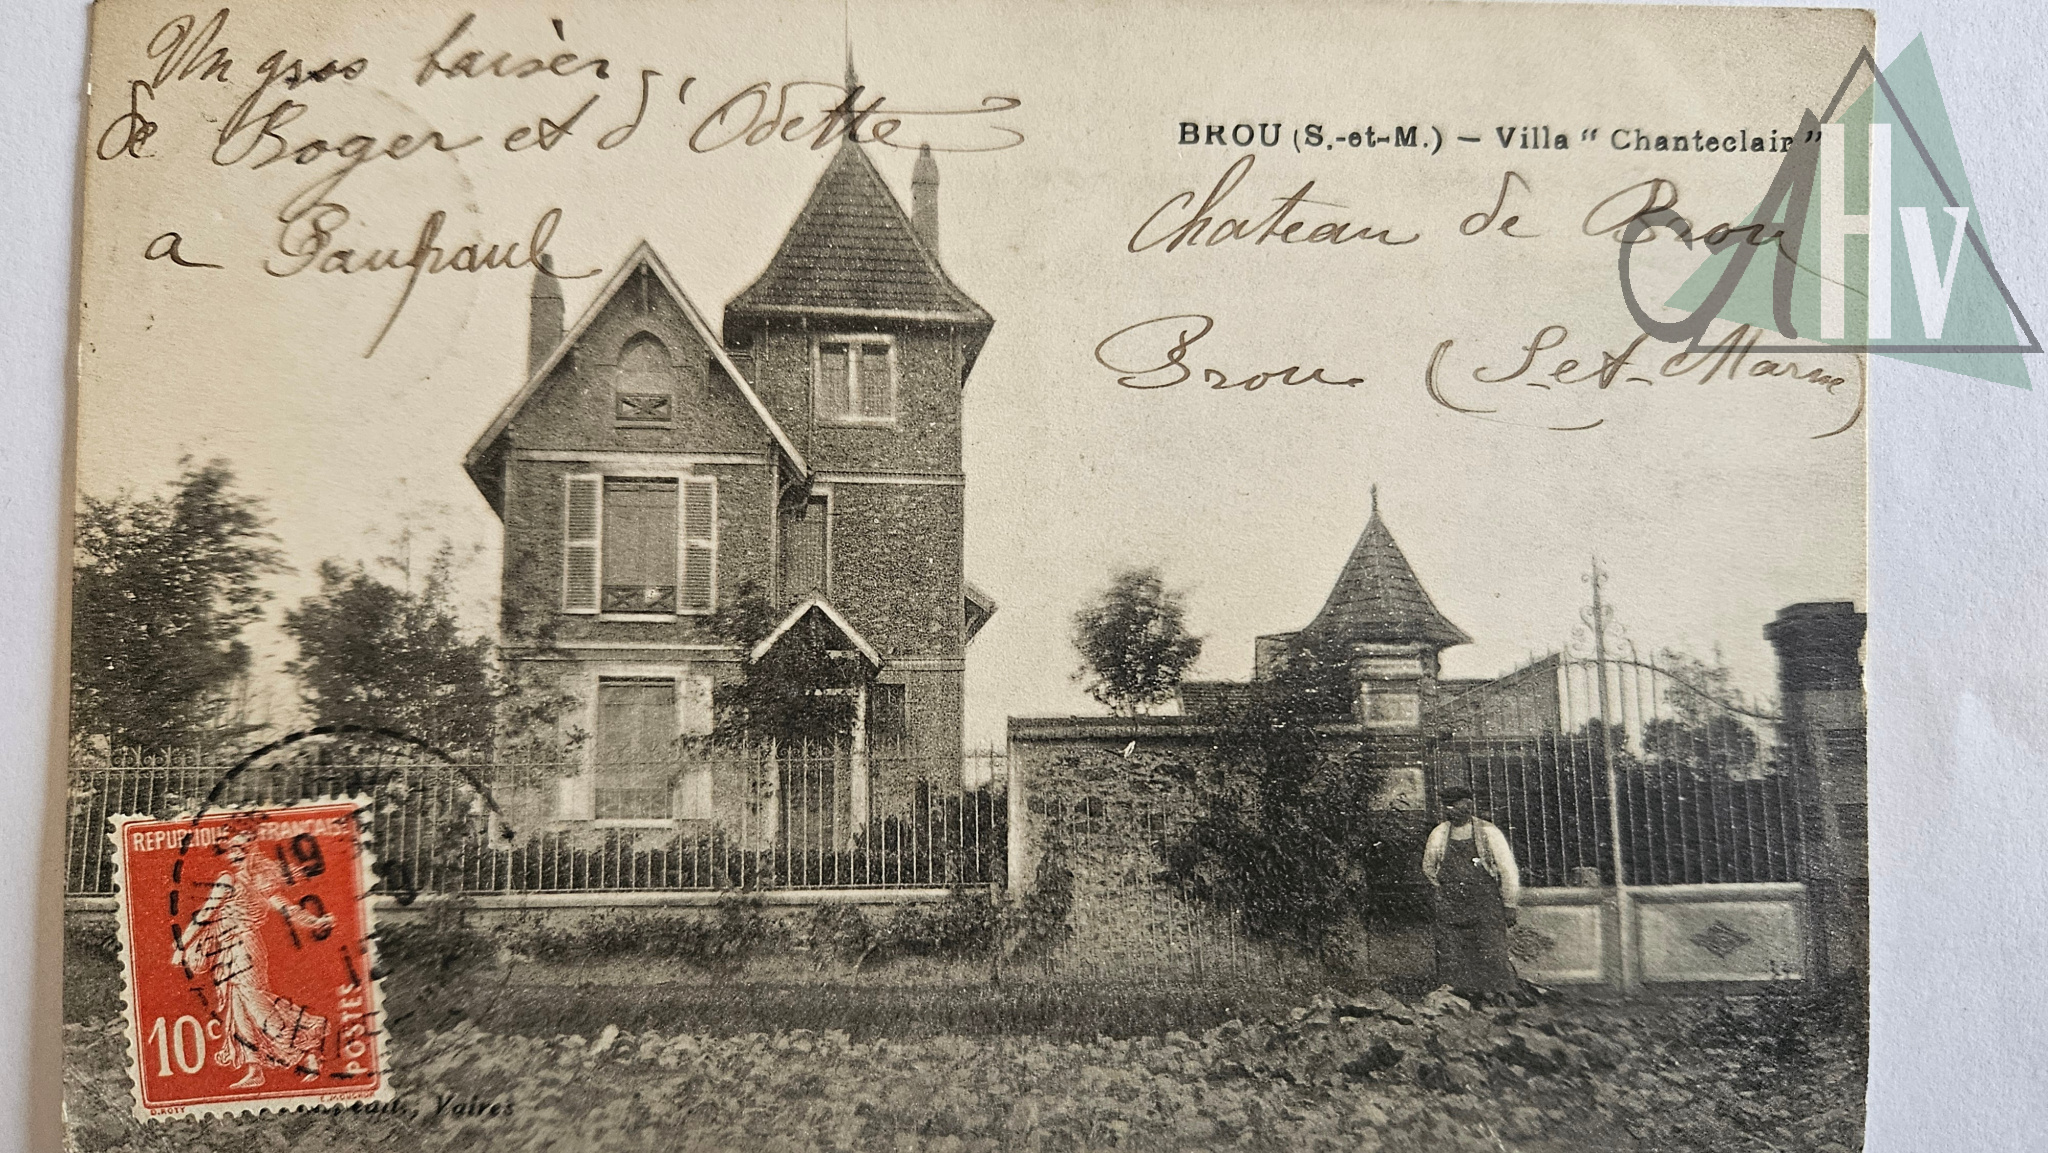 Un gros baiser
de Roger et d'Odette
a Paupaul
BROU (S.-et-M.) — Villa “ Chanteclair ”
Chateau de Brou
Brou (S-et-Marne)
REPUBLIQUE FRANÇAISE
10c
POSTES
O.ROTY
19
12
BROU
Vaires
AHV